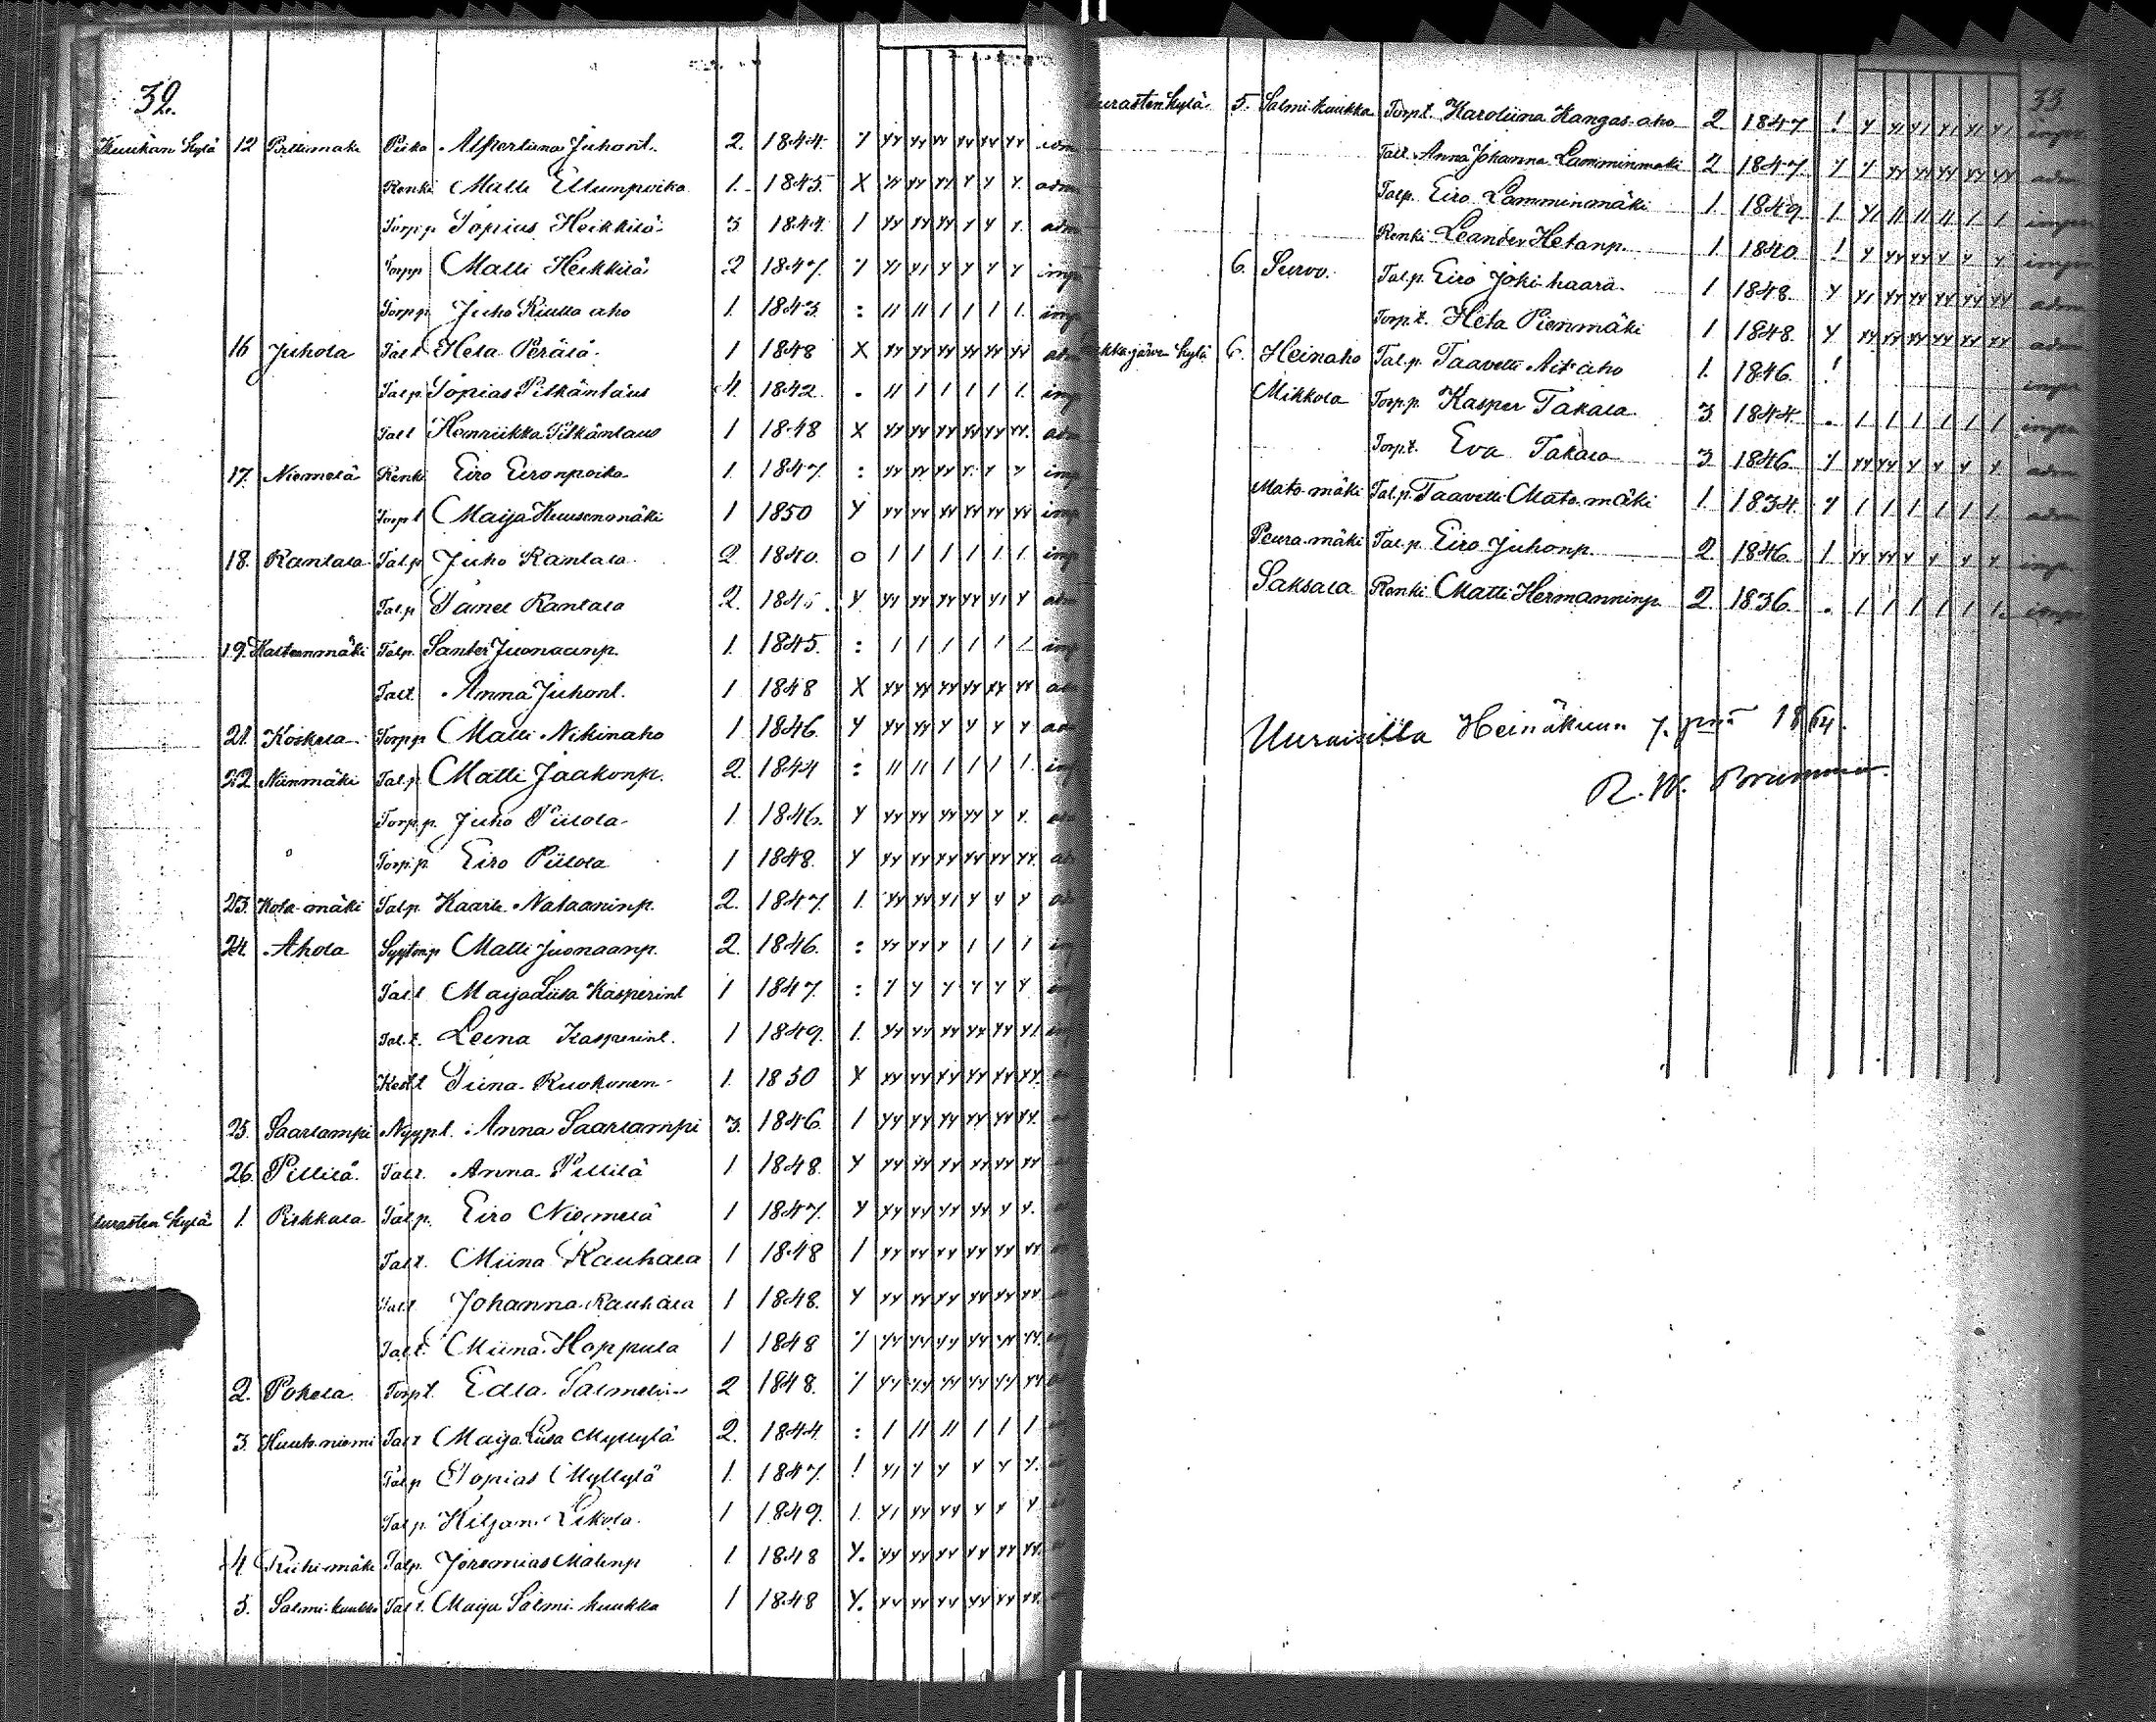 32.
Kuukan kylä 12 Pirttimäki Piika Alpertiina Juhont. 2. 1844. Y YY YY YY YY YY YY adm
Renki Matti Ellunpoika 1. 1845. X YY YY YY Y Y Y. adm
Torp.p Topias Heikkilä 3 1844. / YY YY YY Y Y Y. adm
Torpp Matti Heikkilä 2 1847. Y YI YI Y Y Y Y imp
Torp.p. Juho aho 1. 1843. : II II I I I I. imp
16 Juhola Tal.t Heta Perälä. 1 1848 X YY YY YY YY YY YY adm
Tal.p. Topias Pitkäntaus 4. 1842. . II I I I I I. imp
Tal.t Henriikka Pitkäntaus 1 1848 X YY YY YY YY YY YY. adm
17. Niemelä Renki Eiro Eironpoika 1. 1847. : YY YY YY Y. Y Y imp
Torp.t Maija Kuusenmäki 1 1850 Y YY YY YY YY YY YY imp
18. Rantala Tal.p Juho Rantala 2 1840. o I I I I I I. imp
Tal.p Taneli Rantala 2. 184 . Y YY YY YY YY YI Y adm
19. Kaltevnmäki Tal.p. Santer Juonaanp. 1. 1845. : I I I I I I imp
Tal.t. Anna Juhont. 1 1848 X YY YY YY YY YY YY adm
21. Koskela Torp.p Matti Nikinaho 1 1846. Y YY YY YY Y Y Y adm
22 Niinmäki Tal.p. Matti Jaakonp. 2. 1844 : II II I I I I. imp
Torp.p. Juho Piilola 1. 1846. Y YY YY YY YY Y Y. adm
Torp.p. Eiro Piilola 1 1848. Y YY YY YY YY YY YY. adm
23. Kota-mäki Tal.p. Kaarle Nataaninp. 2. 1847. 1. YY YY YI Y Y Y adm
24. Ahola Matti Juonaanp. 2. 1846. : YY YY Y I I I imp
Tal.t Maija Liisa Kasperint 1 1847. : Y Y Y Y Y Y imp
Tal.t. Leena Kasperint. 1 1849. 1. YY YY YY YY YY YI. imp
Kest.t Tiina Ruokonen 1. 1850 Y YY YY YY YY YY YY.
25. Saarlampi Nyypl. Anna Saarlampi 3. 1846. I YY YY YY YY YY YY.
26. Pillilä Tal.t. Anna Pillilä 1 1848. Y YY YY YY YY YY YY
kylä 1. Pirkkala Tal.p. Eiro Niemelä 1 1847. Y YY YY YY YY Y Y.
Tal.t. Miina Rauhala 1 1848 / YY YY YY YY YY YY
Tal.t Johanna Rauhala 1 1848. Y YY YY YY YY YY YY
Tal.t. Miina Hoppula 1 1848 Y YY YY YY YY YY YY.
2. Pohela Torp.t. Edla 2 1848. Y YY YY YY YY YY YY
3. Huuto-niemi Tal.t Maija Liisa Myllylä 2. 1844. : I II II I I I
Tal.p Topias Myllylä 1. 1847. ! YI Y Y Y Y Y.
Tal.p. Kiljan Likola. 1 1849. 1. YI YY YY Y Y Y
4 Riihi-mäki Tal.p. Joremias Matinp 1. 1848 Y. YY YY YY YY YY YY.
5. Salmi-kuukka Tal.t. Maija Salmi-kuukka 1 1848 Y. YY YY YY YY YY YY.
33
kylä. 5. Salmi-kuukka Torp.t. Karoliina Kangas-aho 2 1847 ! Y YI YI YI YI YI impr
Tal.t. Anna Johanna Lamminmäki 2 1847. Y Y YY YY YY YY YY adm
Tal.p. Eiro Lamminmäki 1. 1849 1. YI II II II I I impr
Renki Leander Hetanp. 1 1840 ! Y YY YY Y Y Y impr
6. Survo. Tal.p. Eiro Joki-haara. 1 1848. Y YI YY YY YY YY YY adm
Torp.t. Heta Pienmäki 1 1848. Y YY YY YY YY YY YY adm
kylä 6. Heinaho Tal.p. Taavetti Aitt'aho 1. 1846. ! impr
Mikkola Torp.p. Kasper Takala 3 1844. . I I I I I I impr
Torp.t. Eva Takala 3 1846. Y YY YY Y Y Y Y. adm
Mato-mäki Tal.p. Taavetti Mato-mäki 1. 1834. Y I I I I I I. adm
Peura-mäki Tal.p. Eiro Juhonp. 2. 1846. 1 YY YY Y Y Y Y impr
Saksala Renki Matti Hermanninp 2 1836. . I I I I I I. impr
Uuraisilla Heinäkuun 7. pnä 1864.
R. W. Brummer.